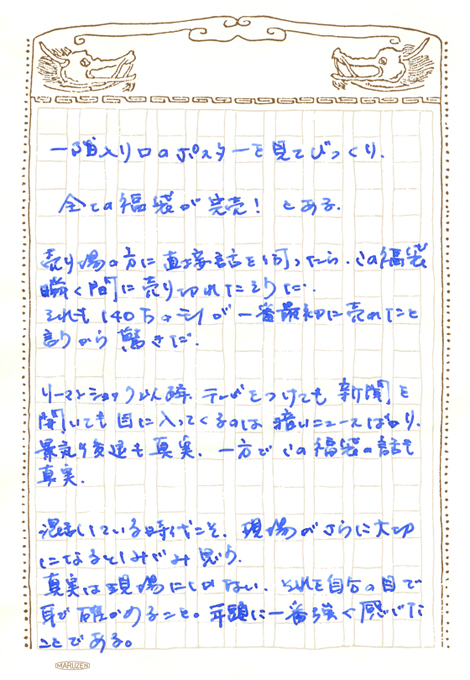 一階入り口のポスターを見てびっくり.
全ての福袋が完売！とある.
売り場の方に直接話を伺ったら、この福袋
瞬く間に売り切れたそうだ.
それも140万のモノが一番最初に売れたと
言うから驚きだ.
リーマンショック以降、テレビをつけても新聞を
開いても目に入ってくるのは暗いニュースばかり.
景気後退も真実. 一方でこの福袋の話も
真実.
混乱している時代こそ、現場がさらに大切
になるとしみじみ思う.
真実は現場にしかない. それを自分の目で
耳で確かめること。年頭に一番強く感じた
ことである。
MARUZEN